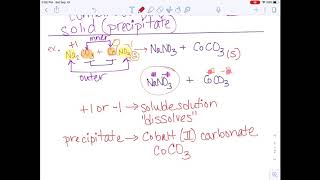 solid (precipitate)
+1 inner
ex. Na₂CO₃ + Co(NO₃)₂ → NaNO₃ + CoCO₃(s)
outer
NaNO₃ + CoCO₃
+1 or -1 → soluble solution
"dissolves"
precipitate → Cobalt (II) carbonate
CoCO₃